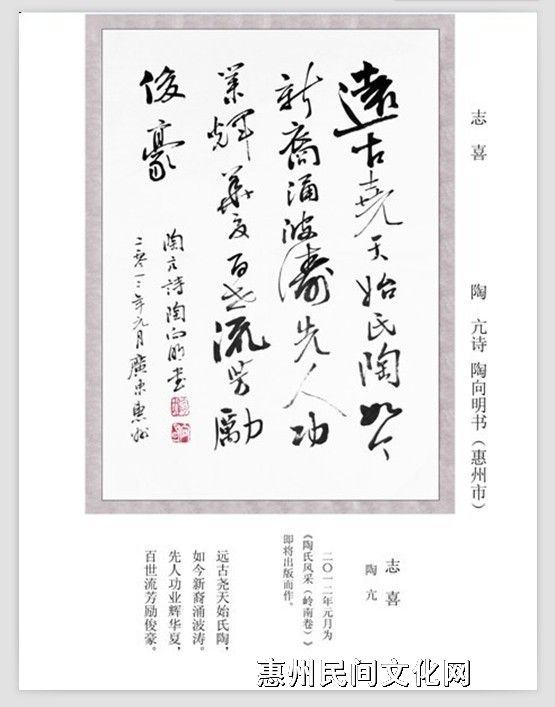 志喜
陶亢诗 陶向明书（惠州市）
遠古堯天始氏陶如今
新裔涌波濤先人功
業輝華夏百世流芳勵
俊豪
陶亢詩陶向明書
二零一二年元月廣東惠州
志喜
陶亢
二〇一二年元月为
《陶氏风采（岭南卷）》
即将出版而作。
远古尧天始氏陶，
如今新裔涌波涛。
先人功业辉华夏，
百世流芳励俊豪。
惠州民间文化网